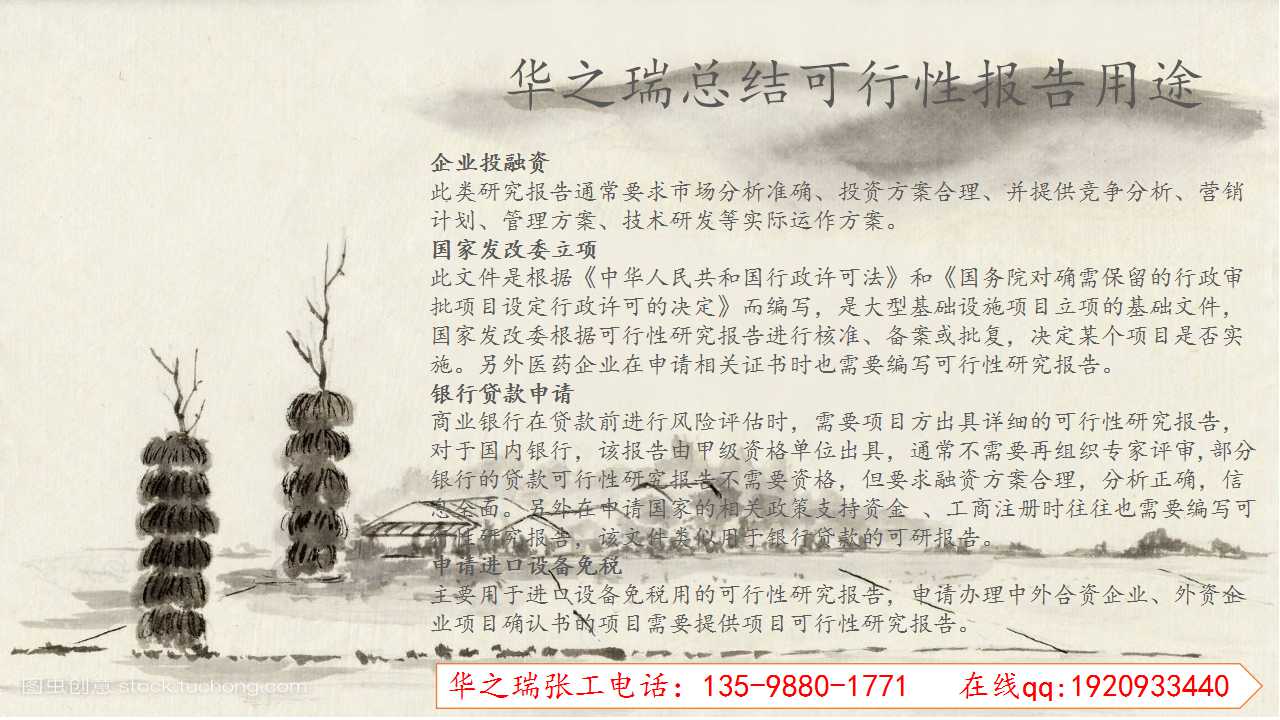 华之瑞总结可行性报告用途
企业投融资
此类研究报告通常要求市场分析准确、投资方案合理、并提供竞争分析、营销
计划、管理方案、技术研发等实际运作方案。
国家发改委立项
此文件是根据《中华人民共和国行政许可法》和《国务院对确需保留的行政审
批项目设定行政许可的决定》而编写，是大型基础设施项目立项的基础文件，
国家发改委根据可行性研究报告进行核准、备案或批复，决定某个项目是否实
施。另外医药企业在申请相关证书时也需要编写可行性研究报告。
银行贷款申请
商业银行在贷款前进行风险评估时，需要项目方出具详细的可行性研究报告，
对于国内银行，该报告由甲级资格单位出具，通常不需要再组织专家评审,部分
银行的贷款可行性研究报告不需要资格，但要求融资方案合理，分析正确，信
息全面。另外在申请国家的相关政策支持资金 、工商注册时往往也需要编写可
行性研究报告，该文件类似用于银行贷款的可研报告。
申请进口设备免税
主要用于进口设备免税用的可行性研究报告，申请办理中外合资企业、外资企
业项目确认书的项目需要提供项目可行性研究报告。
华之瑞张工电话：135-9880-1771 在线qq:1920933440
图虫创意 stock.tuchong.com